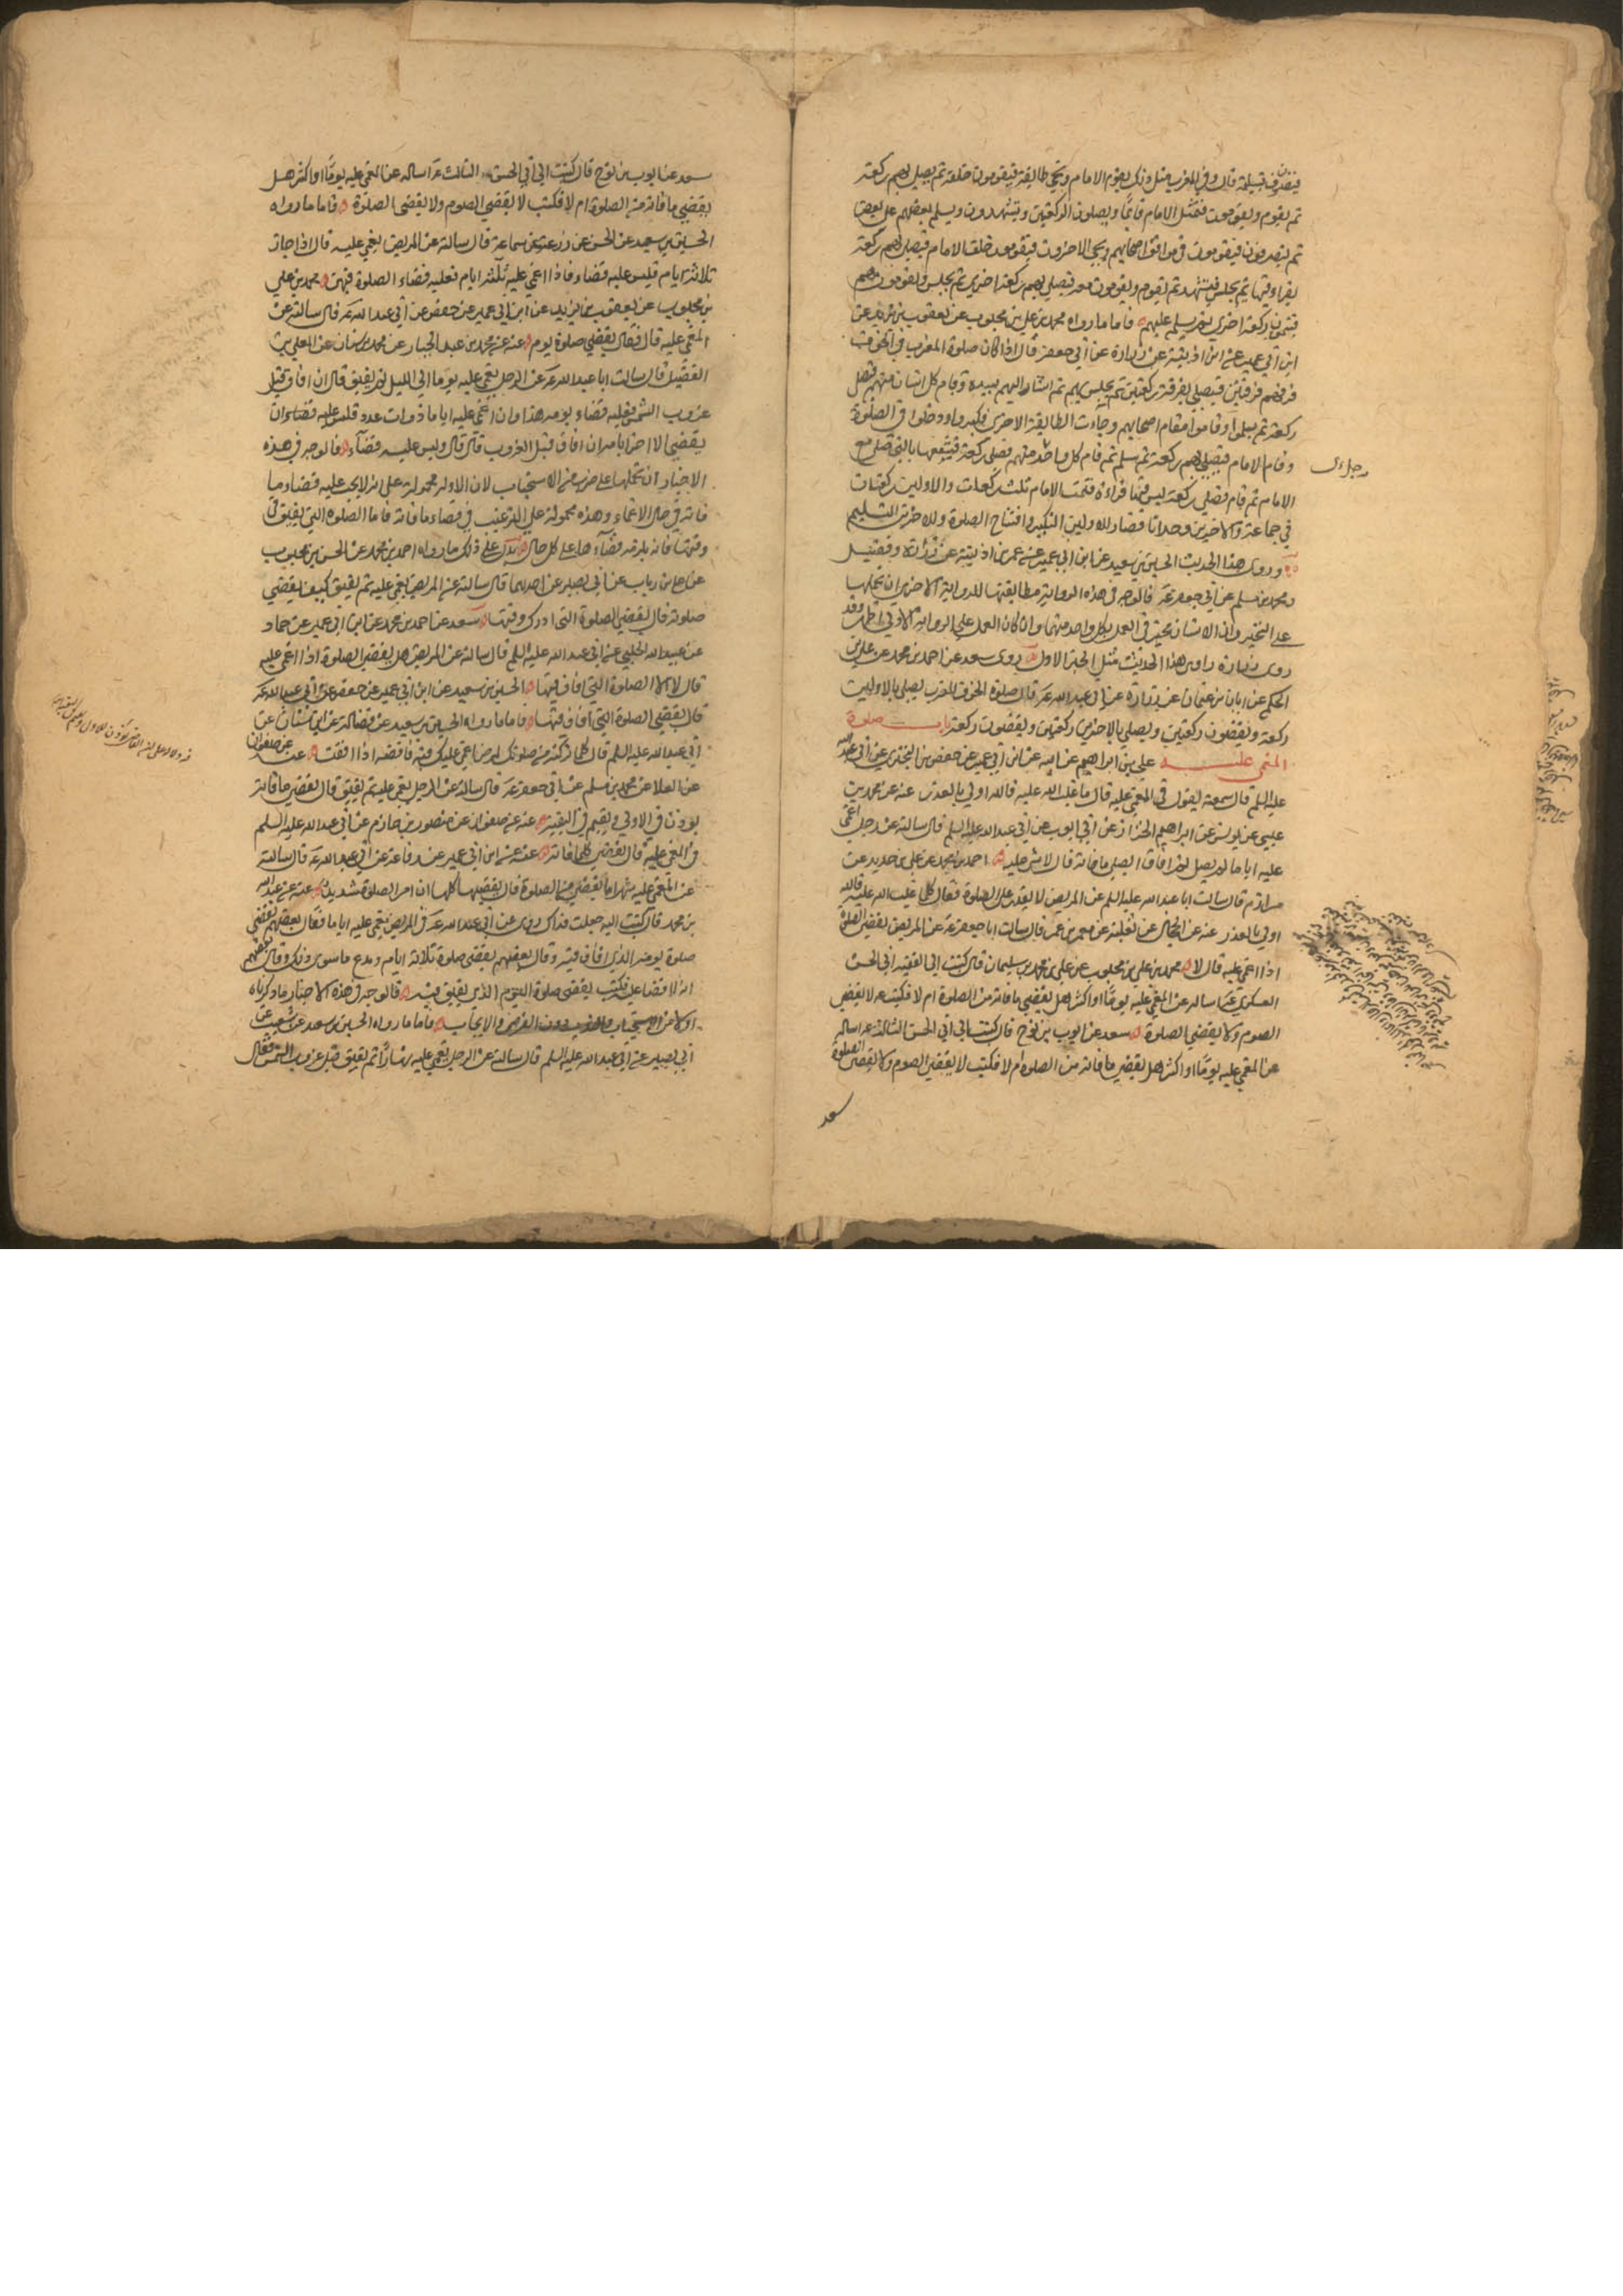 فينصرفون بتسليمة قال وفي المغرب مثل ذلك يقوم الامام ويجي طائفة فيقومون خلفه ثم يصلي بهم ركعة
ثم يقوم ويقومون فيمثل الامام قائما ويصلون الركعتين ويتشهدون ويسلم بعضهم على بعض
ثم ينصرفون فيقومون في مواقف اصحابهم ويجي الاخرون فيقومون خلف الامام فيصلي بهم ركعة
يقرا فيها ثم يجلس فيتشهد ثم يقوم ويقومون معه فيصلي بهم ركعة اخرى ثم يجلس ويقومون هم
فيتمون ركعة اخرى ثم يسلم عليهم فاما ما رواه محمد بن علي بن محبوب عن يعقوب بن يزيد عن
ابن ابي عمير عن ابن اذينة عن زرارة عن ابي جعفر قال اذا كان صلوة المغرب في الخوف
فرقهم فرقتين فيصلي بفرقة ركعتين ثم يجلس بهم ثم اشار اليهم بيده وقام كل انسان منهم فيصلي
ركعة ثم سلموا وقاموا مقام اصحابهم وجاءت الطائفة الاخرى فكبروا ودخلوا في الصلوة
وقام الامام فيصلي بهم ركعة ثم سلم ثم قام كل واحد منهم فصلى ركعة فيشفعها بالتي صلى مع
الامام ثم قام فصلى ركعة ليس فيها قراءة فتمت للامام ثلث ركعات وللاولين ركعتان
في جماعة وللاخرين وحدانا فصار للاولين التكبير وافتتاح الصلوة وللاخرين التسليم
وروى هذا الحديث الحسين بن سعيد عن ابن ابي عمير عن عمر بن اذينة عن زرارة وفضيل
ومحمد بن مسلم عن ابي جعفر ع فالوجه في هذه الرواية مطابقتها للرواية الاخرى ان نحملها
على التخيير وان الانسان مخير في العمل بكل واحد منهما وان كان العمل على الرواية الاولى اظهر وقد
روى زرارة راوي هذا الحديث مثل الخبر الاول روى سعد عن احمد بن محمد عن علي بن
الحكم عن ابان بن عثمان عن زرارة عن ابي عبد الله ع قال صلوة الخوف المغرب يصلي بالاولين
ركعة ويقضون ركعتين ويصلي بالاخرين ركعتين ويقضون ركعة باب صلوة
المغمى عليه علي بن ابراهيم عن ابيه عن ابن ابي عمير عن حفص بن البختري عن ابي عبد الله
عليه السلم قال سمعته يقول في المغمى عليه قال ما غلب الله عليه فالله اولى بالعذر عنه عن محمد بن
عيسى عن يونس عن ابراهيم الخزاز عن ابي ايوب عن ابي عبد الله عليه السلم قال سالته عن رجل اغمي
عليه اياما لم يصل ثم افاق ايصلي ما فاته قال لا شي عليه احمد بن محمد عن علي بن حديد عن
مرازم قال سالت ابا عبد الله عليه السلم عن المريض لا يقدر على الصلوة فقال كلما غلب الله عليه فالله
اولى بالعذر عنه عن الحجال عن ثعلبة عن معمر بن عمر قال سالت ابا جعفر ع عن المريض يقضي الصلوة
اذا اغمي عليه قال لا محمد بن علي بن محبوب عن علي بن محمد بن سليمان قال كتبت الى الفقيه ابي الحسن
العسكري ع اساله عن المغمى عليه يوما او اكثر هل يقضي ما فاته من الصلوة ام لا فكتب ع لا يقضي
الصوم ولا يقضي الصلوة سعد عن ايوب بن نوح قال كتبت الى ابي الحسن الثالث ع اساله
عن المغمى عليه يوما او اكثر هل يقضي ما فاته من الصلوة ام لا فكتب لا يقضي الصوم ولا يقضي الصلوة
سعد
سعد عن ايوب بن نوح قال كتبت الى ابي الحسن الثالث ع اساله عن المغمى عليه يوما او اكثر هل
يقضي ما فاته من الصلوة ام لا فكتب لا يقضي الصوم ولا يقضى الصلوة فاما ما رواه
الحسين بن سعيد عن الحسن عن زرعة عن سماعة قال سالته عن المريض يغمى عليه قال اذا جاز
ثلاثة ايام فليس عليه قضاء فاذا اغمي عليه ثلثة ايام فعليه قضاء الصلوة فيهن محمد بن علي
بن محبوب عن يعقوب بن يزيد عن ابن ابي عمير عن حفص عن ابي عبد الله ع قال سالته عن
المغمى عليه قال فقال يقضي صلوة يوم عنه عن محمد بن عبد الجبار عن محمد بن سنان عن العلا بن
الفضيل قال سالت ابا عبد الله ع عن الرجل يغمى عليه يوما الى الليل ثم يفيق قال ان افاق قبل
غروب الشمس فعليه قضاء يومه هذا وان اغمي عليه اياما ذوات عدد فليس عليه قضاء ان
يقضي الا اخر ايامه ان افاق قبل الغروب قال قال وليس عليه قضاء فالوجه في هذه
الاخبار ان نحملها على ضرب من الاستحباب لان الاوله محمولة على انه لا يجب عليه قضاء ما
فاته في حال الاغماء وهذه محمولة على الترغيب في قضاء ما فاته فاما الصلوة التي يفيق في
وقتها فانه يلزمه قضاءها على كل حال يدل على ذلك ما رواه احمد بن محمد عن الحسن بن محبوب
عن علي بن رياب عن ابي بصير عن احدهما قال سالته عن المريض يغمى عليه ثم يفيق كيف يقضي
صلوته قال يقضي الصلوة التي ادرك وقتها سعد عن احمد بن محمد عن ابن ابي عمير عن حماد
عن عبيد الله الحلبي عن ابي عبد الله عليه السلم قال سالته عن المريض هل يقضي الصلوة اذا اغمي عليه
قال لا الا الصلوة التي افاق فيها الحسين بن سعيد عن ابن ابي عمير عن حفص عن ابي عبد الله ع
قال يقضي الصلوة التي افاق فيها فاما ما رواه الحسين بن سعيد عن فضالة عن ابن سنان عن
ابي عبد الله عليه السلم قال كلما تركته من صلوتك لمرض اغمي عليك فيه فاقضه اذا افقت عنه عن صفوان
عن العلا عن محمد بن مسلم عن ابي جعفر ع قال سالته عن الرجل يغمى عليه ثم يفيق قال يقضي ما فاته
يوذن في الاولى ويقيم في البقية عنه عن صفوان عن منصور بن حازم عن ابي عبد الله عليه السلم
في المغمى عليه قال يقضي كلما فاته عنه عن ابن ابي عمير عن رفاعة عن ابي عبد الله ع قال سالته
عن المغمى عليه شهرا ما يقضي من الصلوة قال يقضيها كلها ان امر الصلوة شديد عنه عن عبد الله
بن محمد قال كتبت اليه جعلت فداك روى عن ابي عبد الله ع في المريض يغمى عليه اياما فقال بعضهم يقضي
صلوة يومه الذي افاق فيه وقال بعضهم يقضي صلوة ثلاثة ايام ويدع ما سوى ذلك وقال بعضهم
انه لا قضا عليه فكتب يقضي صلوة اليوم الذي يفيق فيه فالوجه في هذه الاخبار ما ذكرناه
اولا من الاستحباب والندب دون الفرض والايجاب فاما ما رواه الحسين بن سعيد عن شعيب عن
ابي بصير عن ابي عبد الله عليه السلم قال سالته عن الرجل يغمى عليه نهارا ثم يفيق قبل غروب الشمس فقال